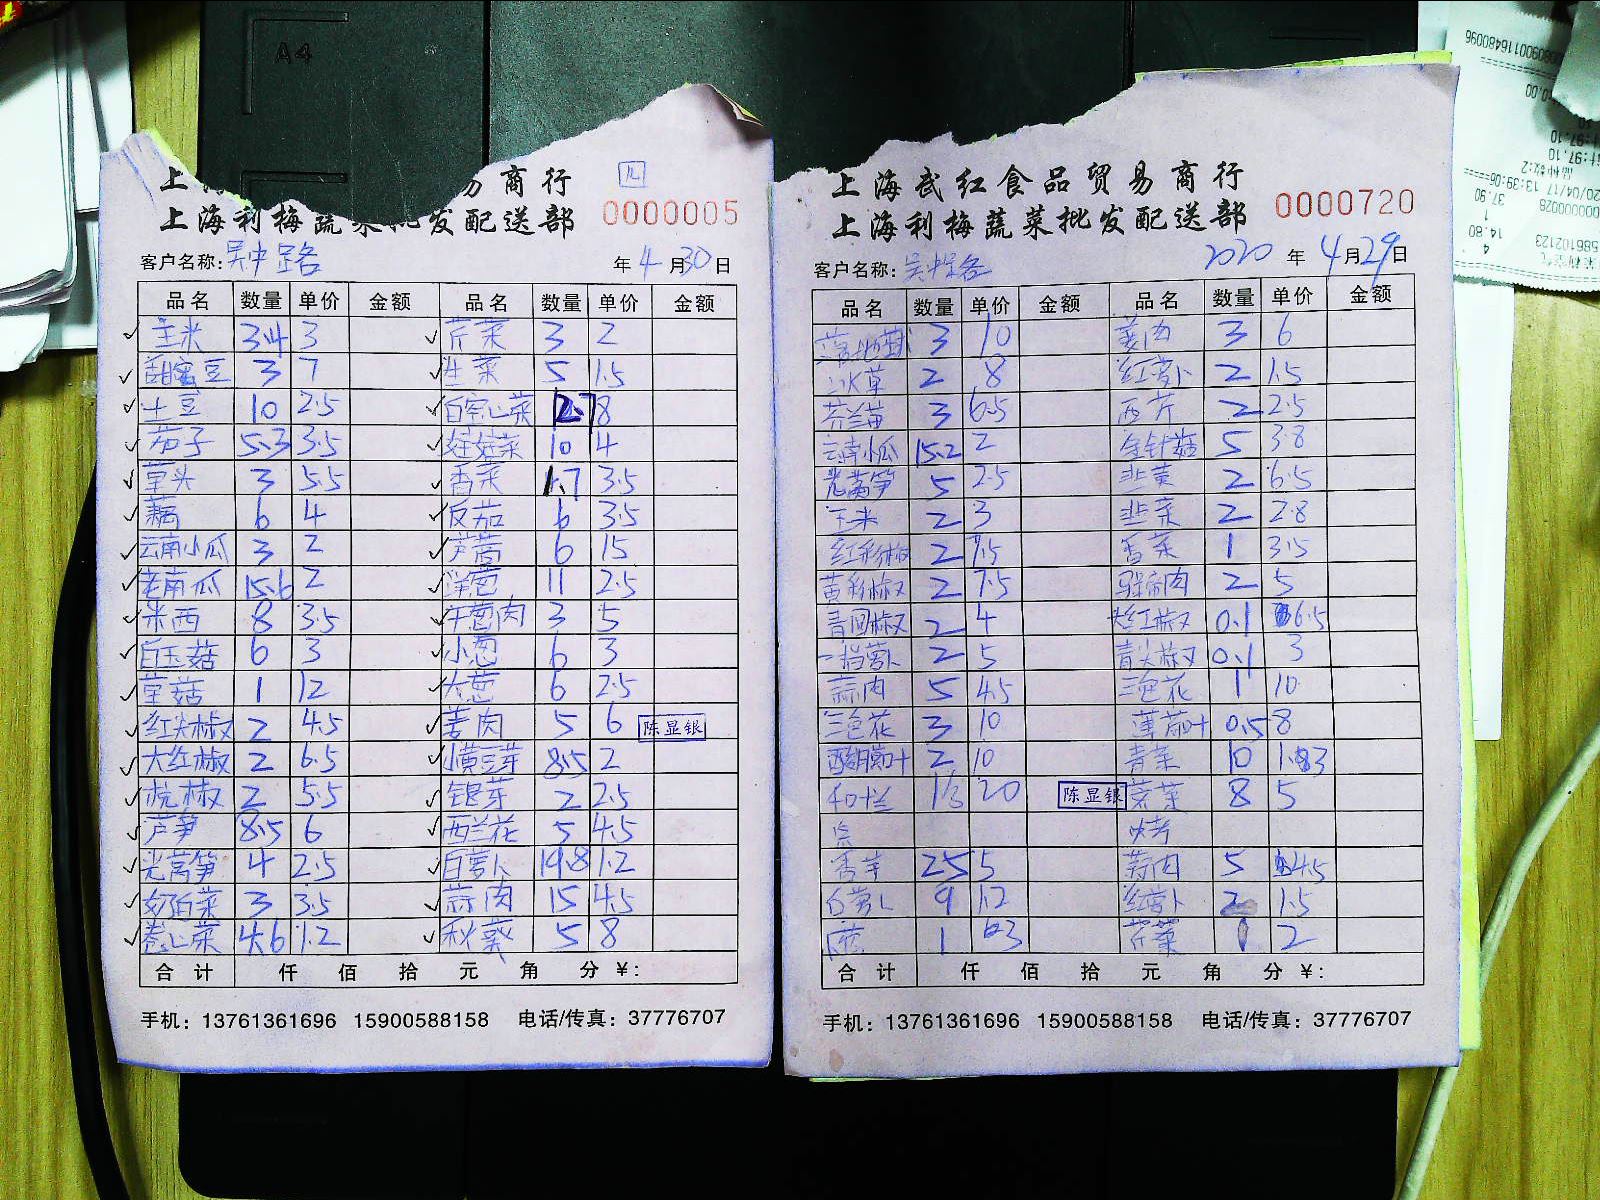 A4
易商行
上海利梅蔬菜批发配送部
0000005
客户名称: 吴中路 年 4 月 30 日
品名 数量 单价 金额 品名 数量 单价 金额
玉米 34 3 芹菜 3 2
甜蜜豆 3 7 生菜 5 1.5
土豆 10 2.5 白空心菜 2.7 8
茄子 5.3 3.5 娃娃菜 10 4
草头 3 5.5 香菜 1.7 3.5
藕 6 4 反茄 6 3.5
云南小瓜 3 2 芦蒿 6 15
老南瓜 15.6 2 洋葱 11 2.5
米西 8 3.5 干葱肉 3 5
白玉菇 6 3 小葱 6 3
草菇 1 12 大葱 6 2.5
红尖椒 2 4.5 姜肉 5 6 陈显银
大红椒 2 6.5 小黄豆芽 8.5 2
杭椒 2 5.5 银芽 2 2.5
芦笋 8.5 6 西兰花 5 4.5
光莴笋 4 2.5 白萝卜 19.8 1.2
奶白菜 3 3.5 蒜肉 15 4.5
卷心菜 4.6 1.2 秋葵 5 8
合计 仟 佰 拾 元 角 分 ¥:
手机: 13761361696 15900588158 电话/传真: 37776707
上海武红食品贸易商行
上海利梅蔬菜批发配送部
0000720
客户名称: 吴中路 2020 年 4 月 29 日
品名 数量 单价 金额 品名 数量 单价 金额
3 10 姜肉 3 6
冰草 2 8 红萝卜 2 1.5
芥兰苗 3 6.5 西芹 2 2.5
云南小瓜 15.2 2 金针菇 5 3.8
光莴笋 5 2.5 韭菜 2 6.5
玉米 2 3 韭菜 2 2.8
红彩椒 2 7.5 香菜 1 3.5
黄彩椒 2 7.5 2 5
青圆椒 2 4 大红椒 0.1 6.5
2 5 青尖椒 0.1 3
蒜肉 5 4.5 三色花 1 10
三色花 3 10 薄荷叶 0.5 8
2 10 青菜 10
1/3 20 陈显银 8 5
香芋 25 5 蒜肉 5 4.5
白萝卜 9 1.2 红萝卜 2 1.5
1 3 芹菜 1 2
合计 仟 佰 拾 元 角 分 ¥:
手机: 13761361696 15900588158 电话/传真: 37776707